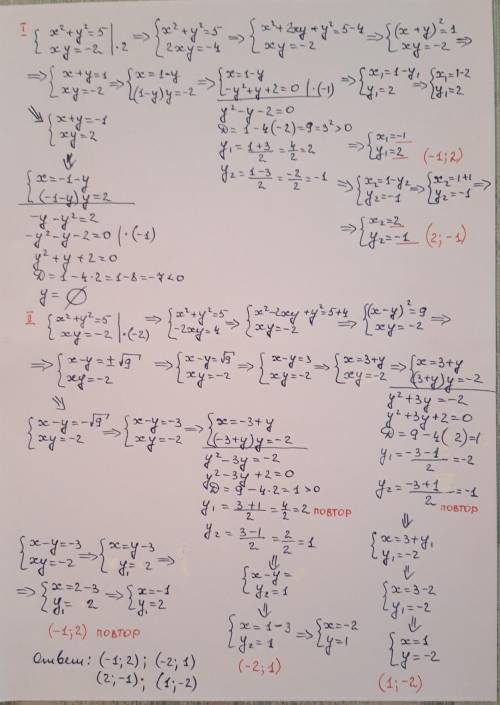 I { x²+y²=5 | xy=-2 | ·2 => { x²+y²=5 | 2xy=-4 => { x²+2xy+y²=5-4 | xy=-2 => { (x+y)²=1 | xy=-2 =>
=> { x+y=1 | xy=-2 => { x=1-y | (1-y)y=-2 => { x=1-y | -y²+y+2=0 | ·(-1) => { x₁=1-y₁ | y₁=2 => { x₁=1-2 | y₁=2
y²-y-2=0
D=1-4(-2)=9=3²>0
y₁=(1+3)/2=4/2=2
y₂=(1-3)/2=-2/2=-1
=> { x₁=-1 | y₁=2 (-1;2)
=> { x₂=1-y₂ | y₂=-1 => { x₂=1+1 | y₂=-1 =>
=> { x₂=2 | y₂=-1 (2;-1)
{ x+y=-1 | xy=2
{ x=-1-y | (-1-y)y=2
-y-y²=2
-y²-y-2=0 | ·(-1)
y²+y+2=0
D=1-4·2=1-8=-7<0
y=∅
II { x²+y²=5 | xy=-2 | ·(-2) => { x²+y²=5 | -2xy=4 => { x²-2xy+y²=5+4 | xy=-2 => { (x-y)²=9 | xy=-2 =>
=> { x-y=±√9 | xy=-2 => { x-y=√9 | xy=-2 => { x-y=3 | xy=-2 => { x=3+y | xy=-2 => { x=3+y | (3+y)y=-2
y²+3y=-2
y²+3y+2=0
D=9-4( 2)=1
y₁=(-3-1)/2=-2
y₂=(-3+1)/2=-1
повтор
{ x=3+y₁ | y₁=-2
{ x=3-2 | y₁=-2
{ x=1 | y=-2
(1;-2)
{ x-y=-√9 | xy=-2 => { x-y=-3 | xy=-2 => { x=-3+y | (-3+y)y=-2
y²-3y=-2
y²-3y+2=0
D=9-4·2=1>0
y₁=(3+1)/2=4/2=2 повтор
y₂=(3-1)/2=2/2=1
{ x-y= | y₂=1
{ x=1-3 | y₂=1 => { x=-2 | y=1
(-2;1)
{ x-y=-3 | xy=-2 => { x=y-3 | y₁= 2 =>
=> { x=2-3 | y₁= 2 => { x=-1 | y=2
(-1;2) повтор
Ответ: (-1;2); (-2;1)
(2;-1); (1;-2)